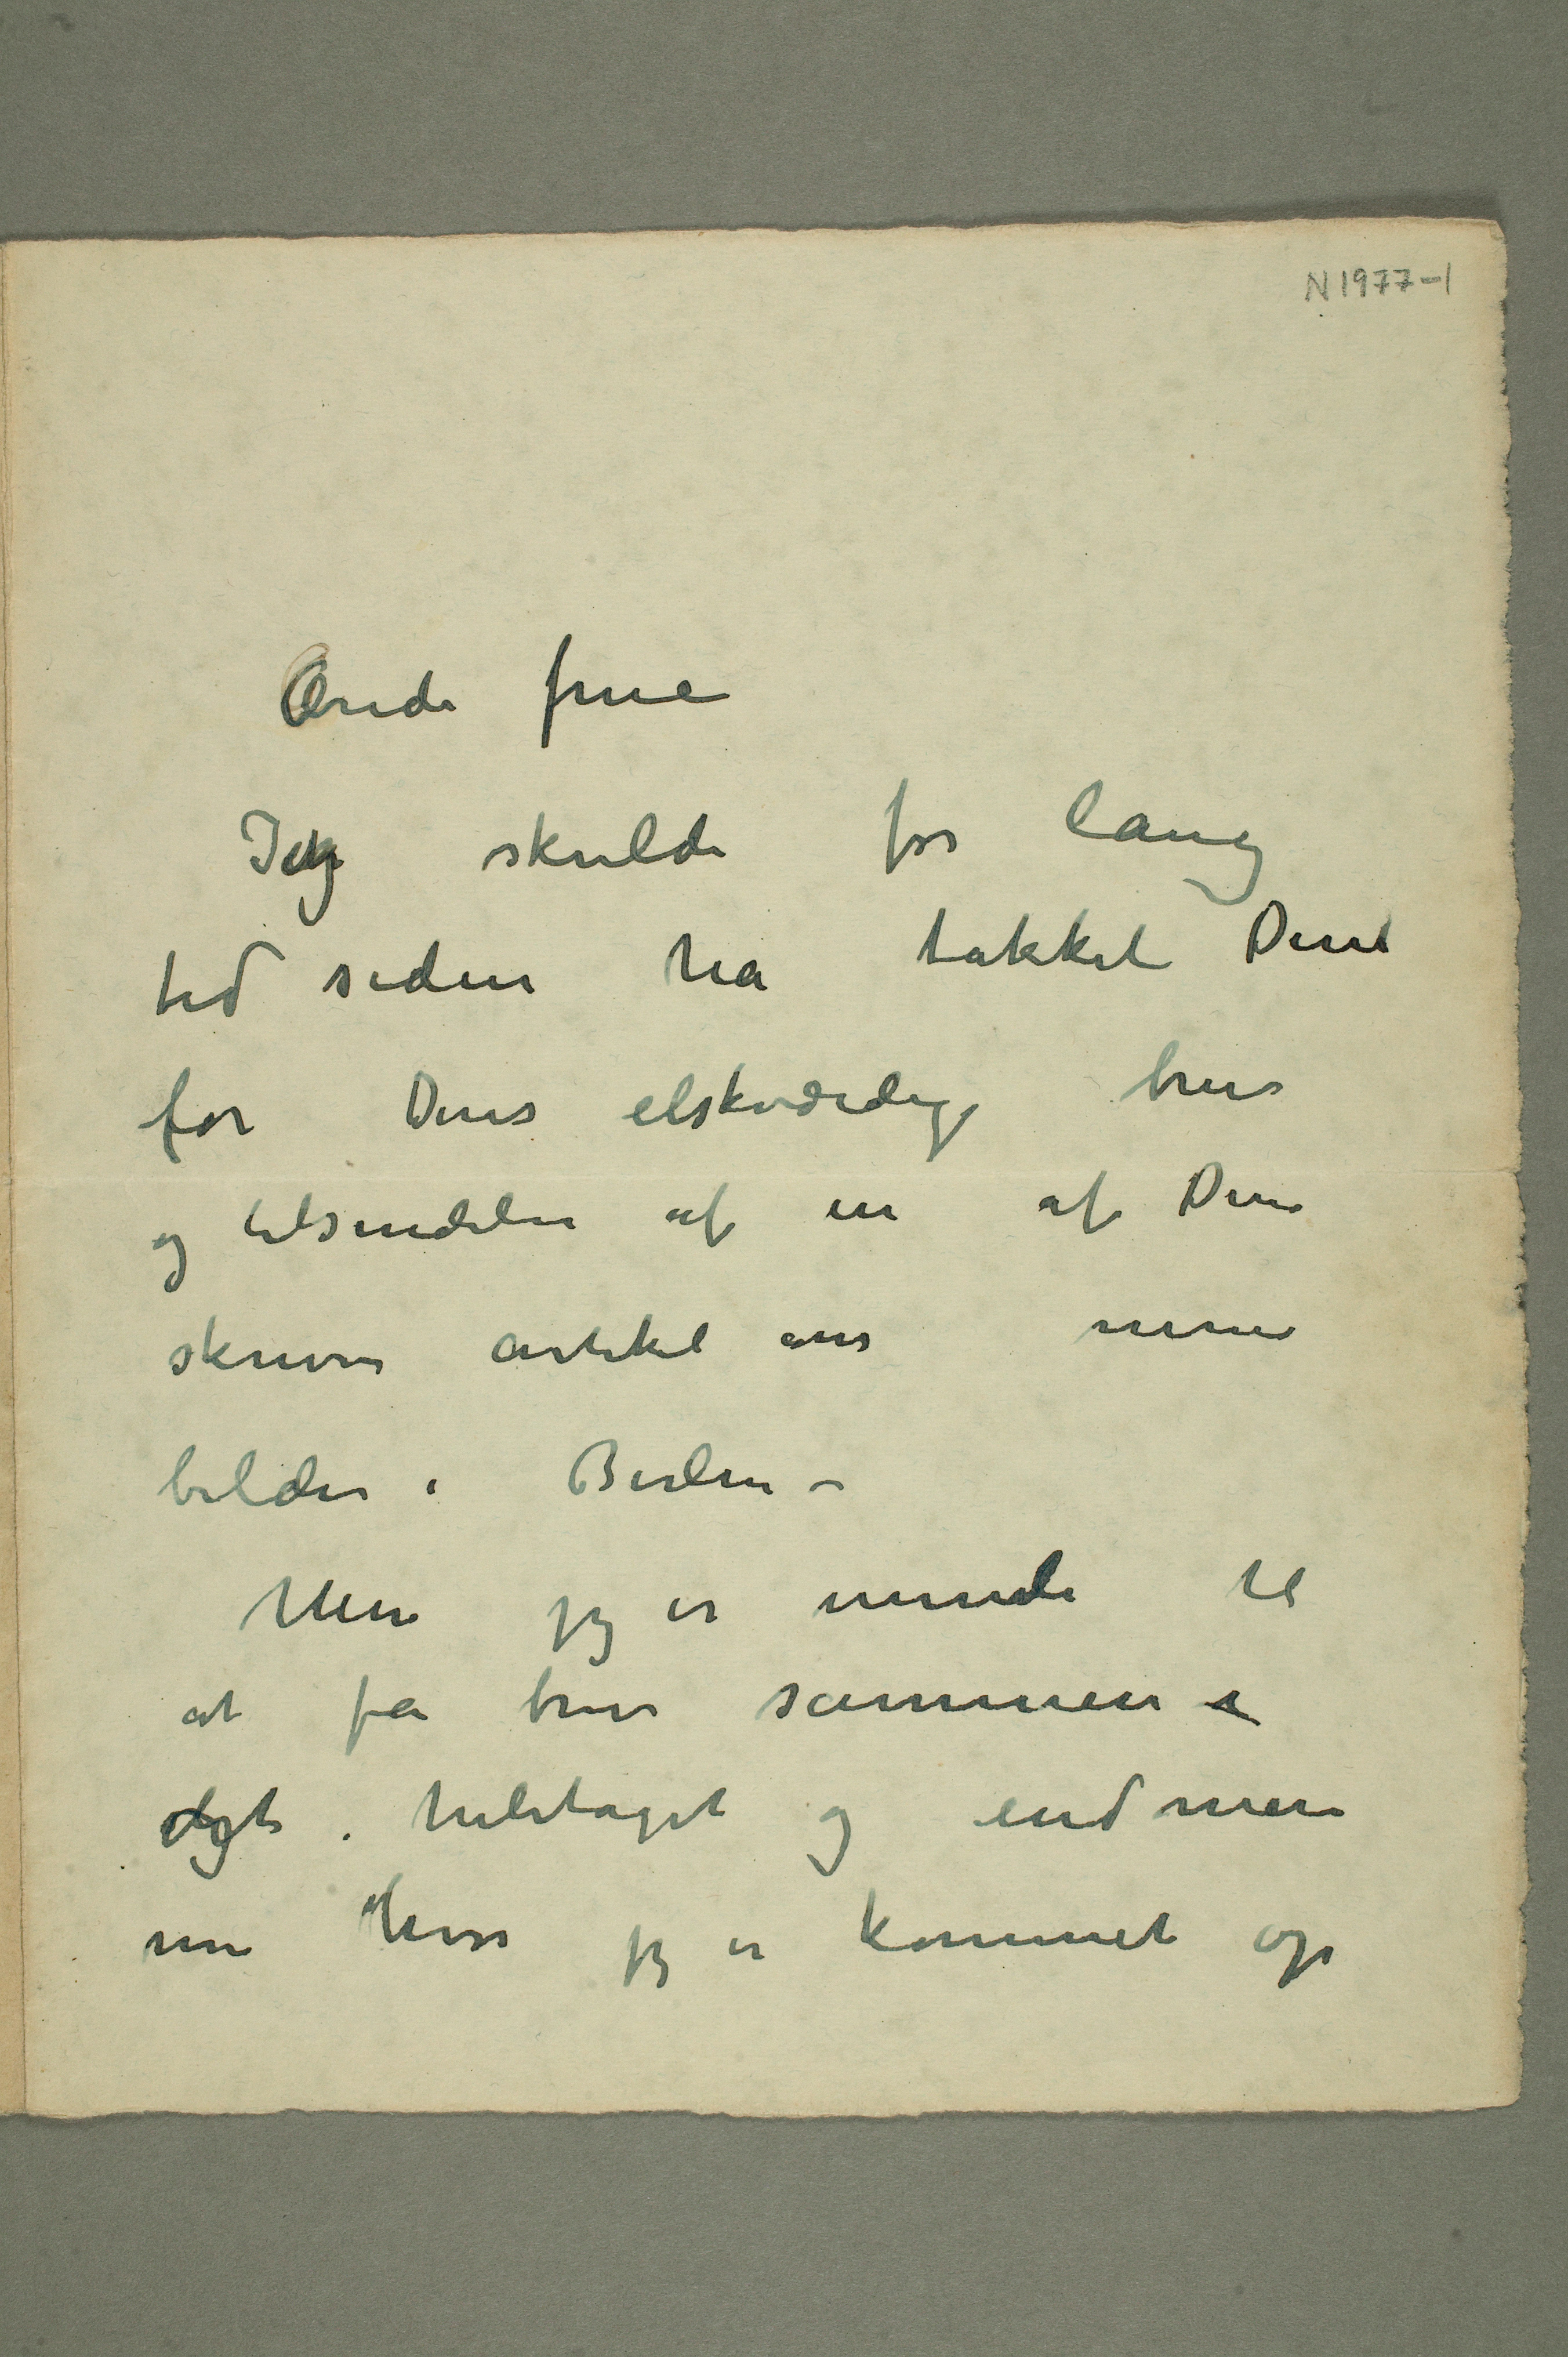 N 1977-1
Ærede frue
Jeg skulde for lang
tid siden ha takket Dem
for Deres elskværdige brev
og tilsendelse af en af Dem
skreven artikel om mine
bilder i Berlin –
Men jeg er umulig til
at få brev sammen
i heletaget og end mere
nu hvor jeg er kommet op